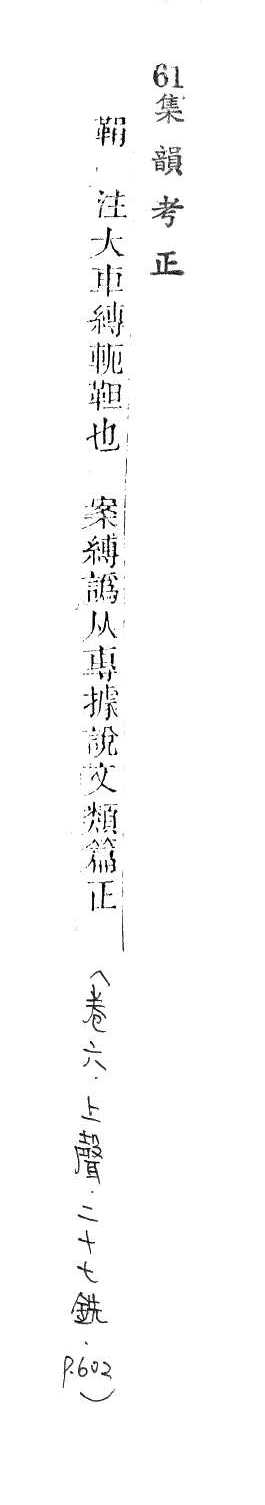 61集韻考正
鞙　注大車縛軛靼也　案縛譌从專據說文類篇正（卷六．上聲．二十七銑．P.602）